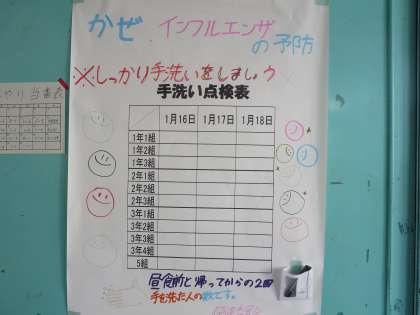 かぜ インフルエンザ
の予防
※しっかり手洗いをしましょう
手洗い点検表
1月16日 1月17日 1月18日
1年1組
1年2組
1年3組
2年1組
2年2組
2年3組
3年1組
3年2組
3年3組
3年4組
5組
昼食前と帰ってからの2回
手を洗った人の数です。